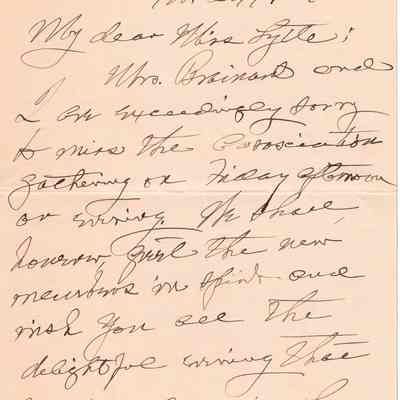 My dear Miss Lytle:
Mrs. Brainard and
I are exceedingly sorry
to miss the Association
gathering on Friday afternoon
or evening. We shall,
however, greet the new
members in spirit and
wish you all the
delightful evening that